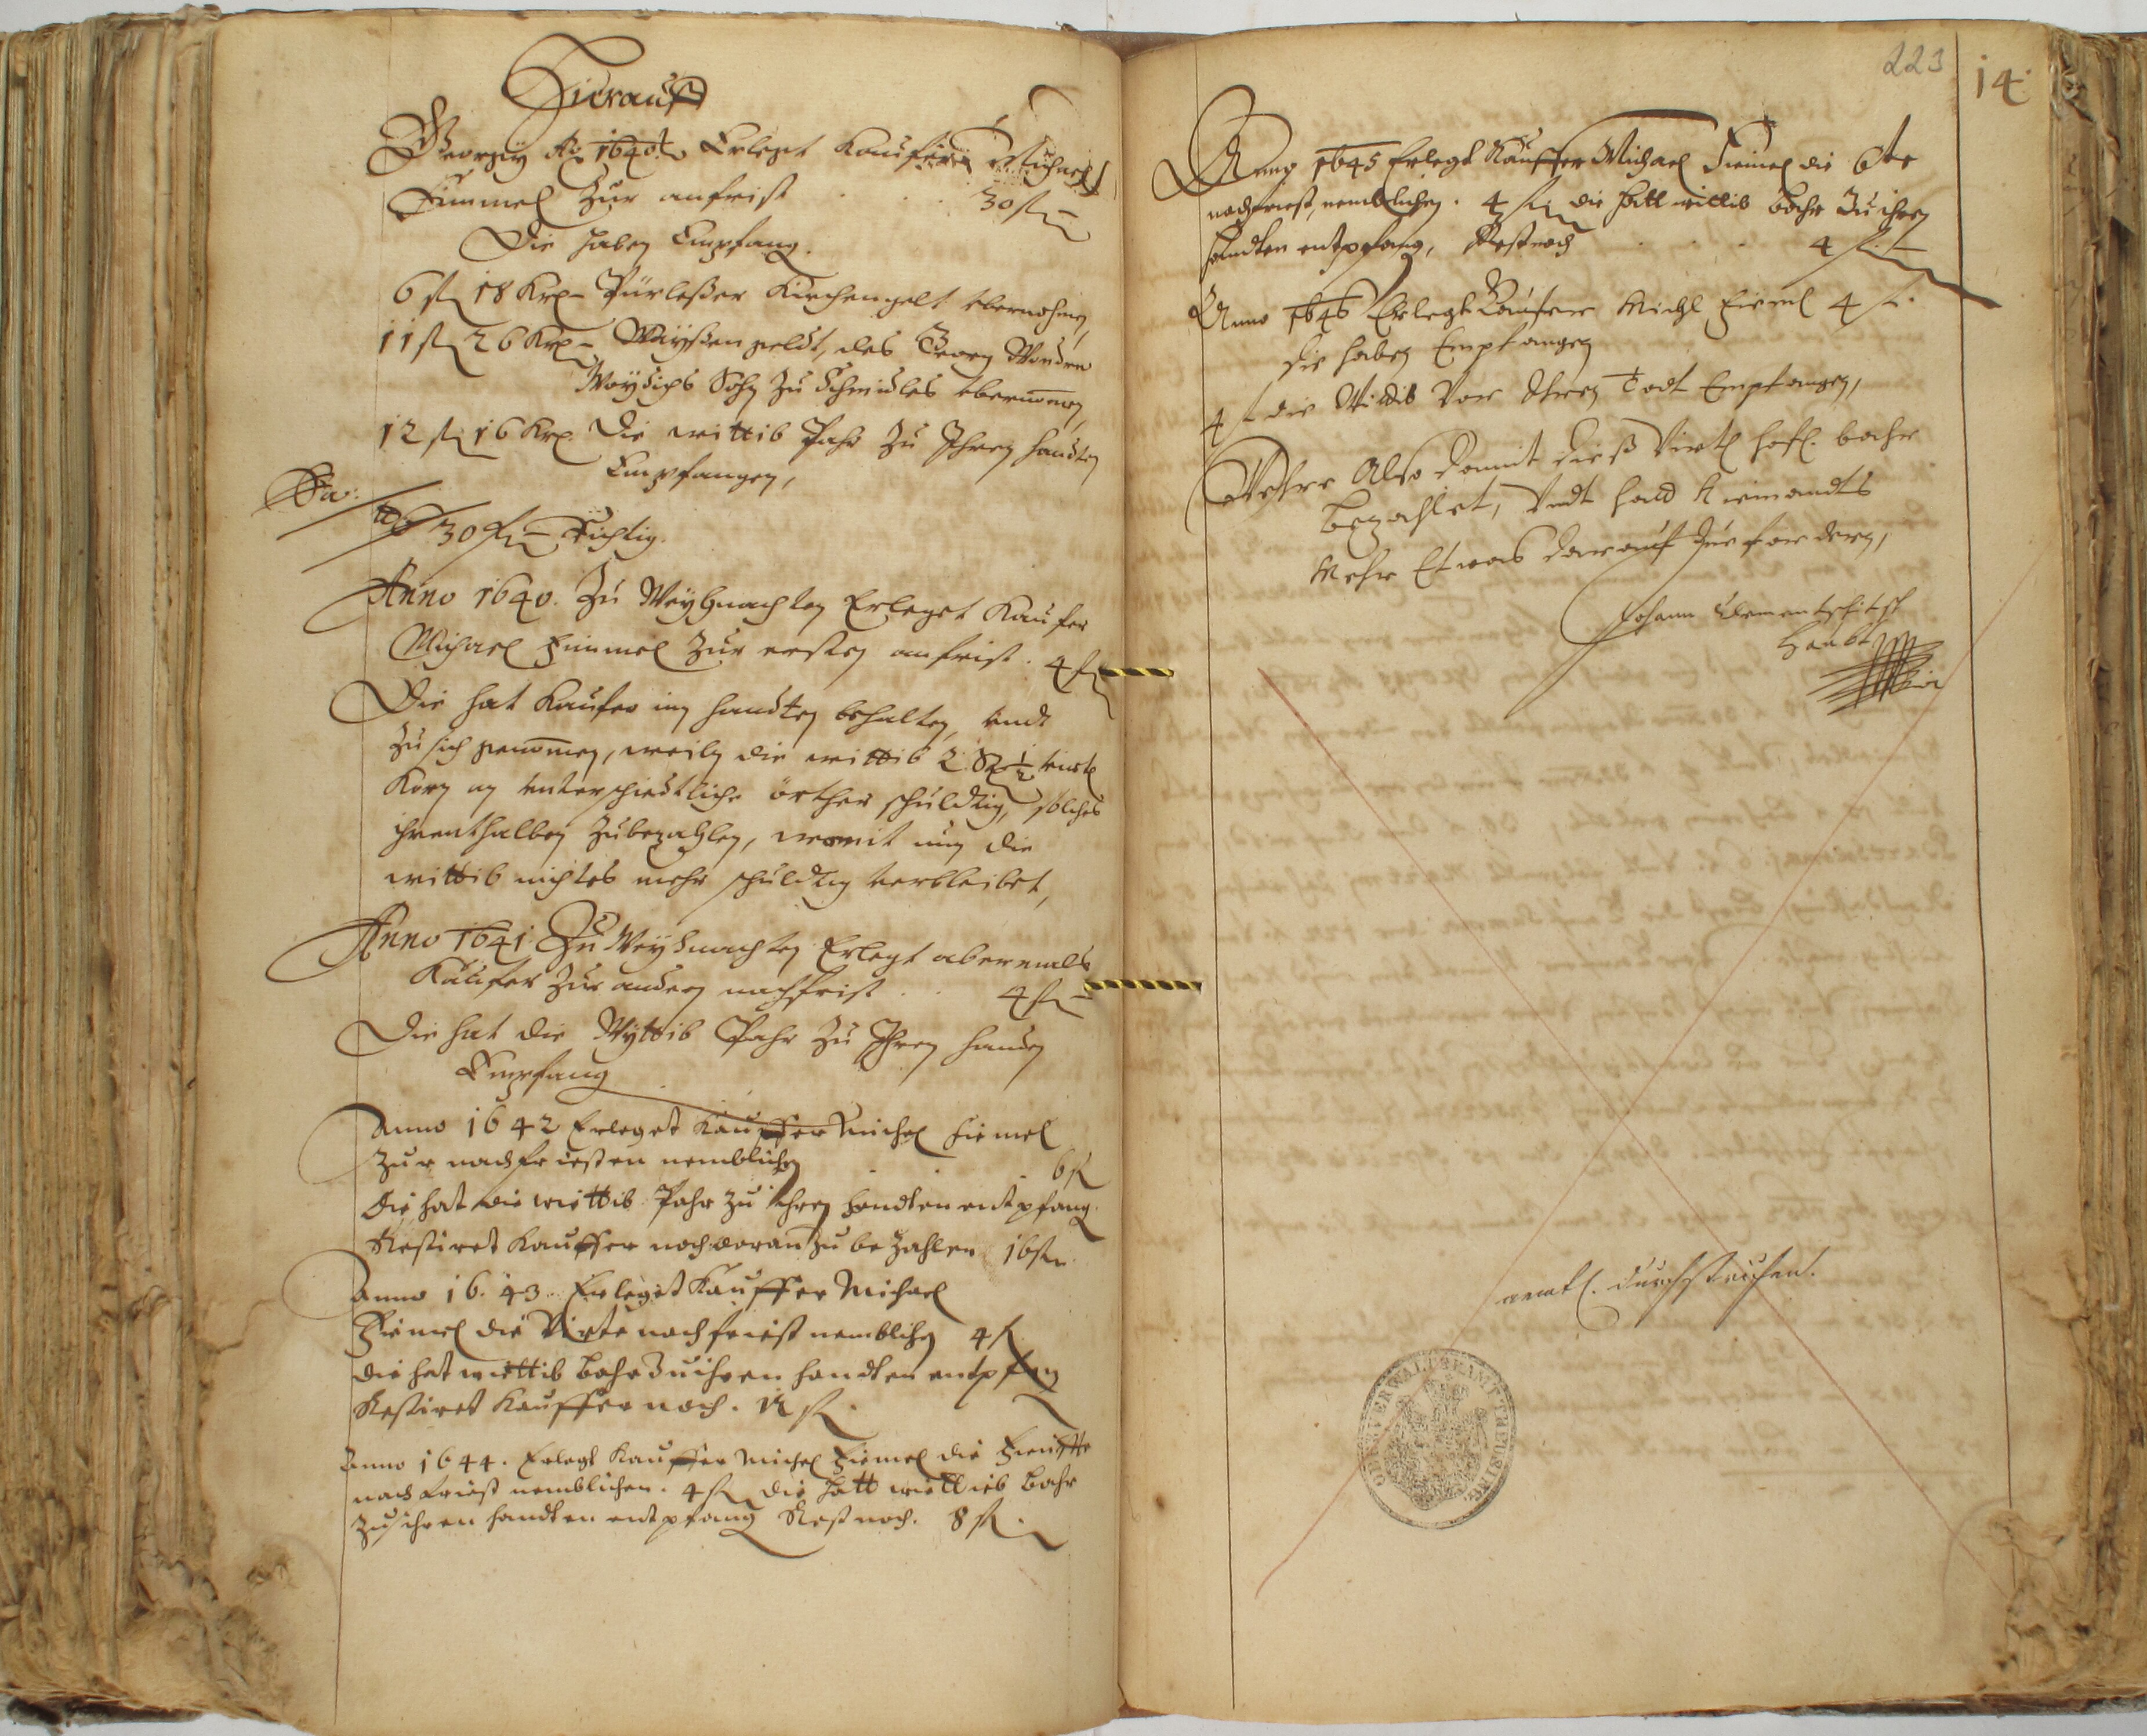 Hierauf
Georgÿ Ao 1640 Erlegt Kaufer Michael
Himmel Zur anfrist . . . 30 fl
Die haben Empfang.
6 fl 18 Krz Pürleßer Kirchengelt
11 fl 26 Krz Waÿßen geldt, des Georg
Sohn zu Schmidles
12 fl 16 Krz. Die wittib Pahr Zu Ihren handten
Empfangen,
Sa:
30 fl Richtig.
Anno 1640. Zu Weÿhnachten Erleget Kaufer
Michael Himmel Zur ersten anfrist . 4 fl
Die hat Kaufer inn handten behalten, undt
zu sich genommen, weiln die wittib 2 1/2 virtl
Korn an unterschiedtliche örther schuldig, solches
ihrenthalben zubezahlen, womit nun die
wittib nichtes mehr schuldig verbleibet,
Anno 1641 Zu Weÿhnachten Erlegt abermals
Kaufer Zur andern nachfrist . . 4 fl
Die hat die Wÿttib Pahr Zu Ihren handen
Empfang
Anno 1642 Erleget Kauffer Michel Hiemel
Zur nachfriesten nemblichen . . 6 fl
die hat die wiettib Pahr zu ihren handten entpfang.
Restiret Kauffer noch daran zu be Zahlen 16 fl
Anno 16.43. Erleget Kauffer Michael
Hiemel die Virte nachfriest nemblichen 4 fl
die hat wiettib bahr Zu ihren handten entpfang
Restiret Kauffer noch. 12 fl
Anno 1644. Erlegt Kauffer Michel Hiemel die
nachfriest nemblichen. 4 fl die hatt wiettieb bahr
zu ihren handten entpfang Rest noch. 8 fl.
223
14
Anno 1645 Erlegt Kauffer Michael Hiemel die 6te
nachfriest, nemblichen. 4 fl die hatt wittib bahr Zu ihren
handten entpfang, Rest noch . . . 4 fl
Anno 1646 Erlegt Kaufer Michl Hieml 4 fl.
die haben Empfangen
4 fl die Wittib Vor Ihren Todt Empfangen,
Were Also damit dieß Virtl hofs. bahr
bezahlet, Undt hatt Niemandts
Mehr Etwas darauf zue fordern,
Johann
amtl. durchstrichen.
OBERVERWALTERAMT TREPISING